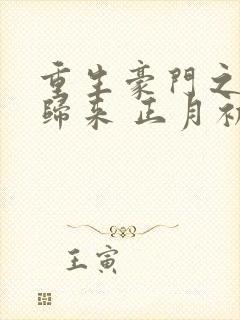 重生豪門之
歸来 正月初
王寅